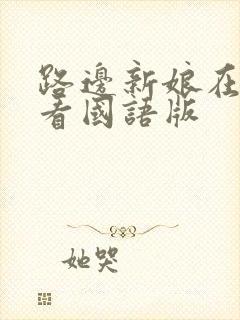 路邊新娘在
看國語版
她哭